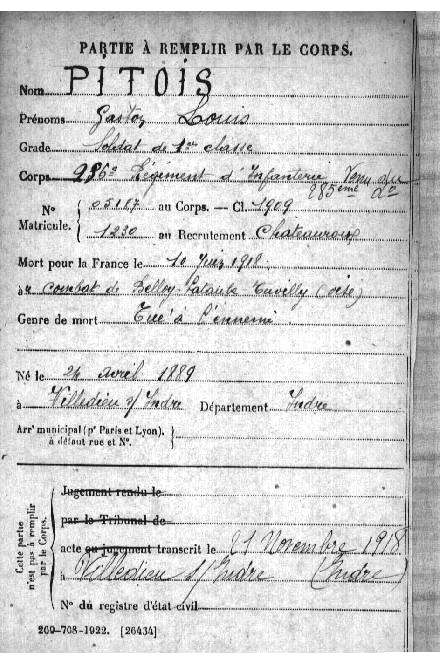 PARTIE À REMPLIR PAR LE CORPS.
Nom PITOIS
Prénoms Gaston Louis
Grade Soldat de 1re classe
Corps 286e Régiment d'Infanterie Venu du
285ème de
N° Matricule. { 05117 au Corps. — Cl. 1909
1230 au Recrutement Chateauroux
Mort pour la France le 10 Juin 1918
à combat de Belloy (oise)
Genre de mort Tué à l'ennemi
Né le 24 avril 1889
à Villedieu s/ Indre Département Indre
Arr' municipal (pr Paris et Lyon),
à défaut rue et N°.
Cette partie n'est pas à remplir par le Corps.
Jugement rendu le
par le Tribunal de
acte ou jugement transcrit le 21 Novembre 1918
à Villedieu s/ Indre (Indre)
N° du registre d'état civil
260-708-1922. [26434]